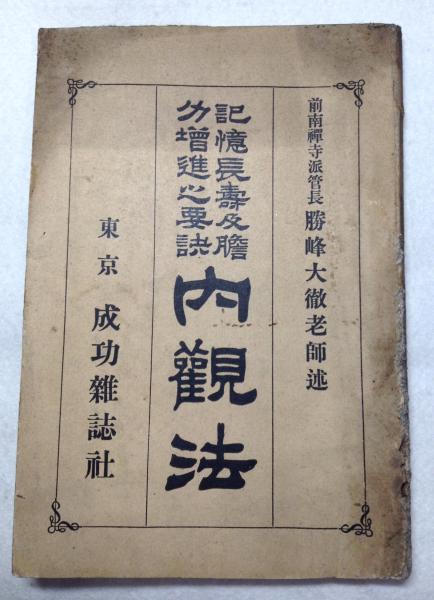 前南禪寺派管長 勝峰大徹老師述
記憶長壽及膽
力增進之要訣
內觀法
東京 成功雜誌社